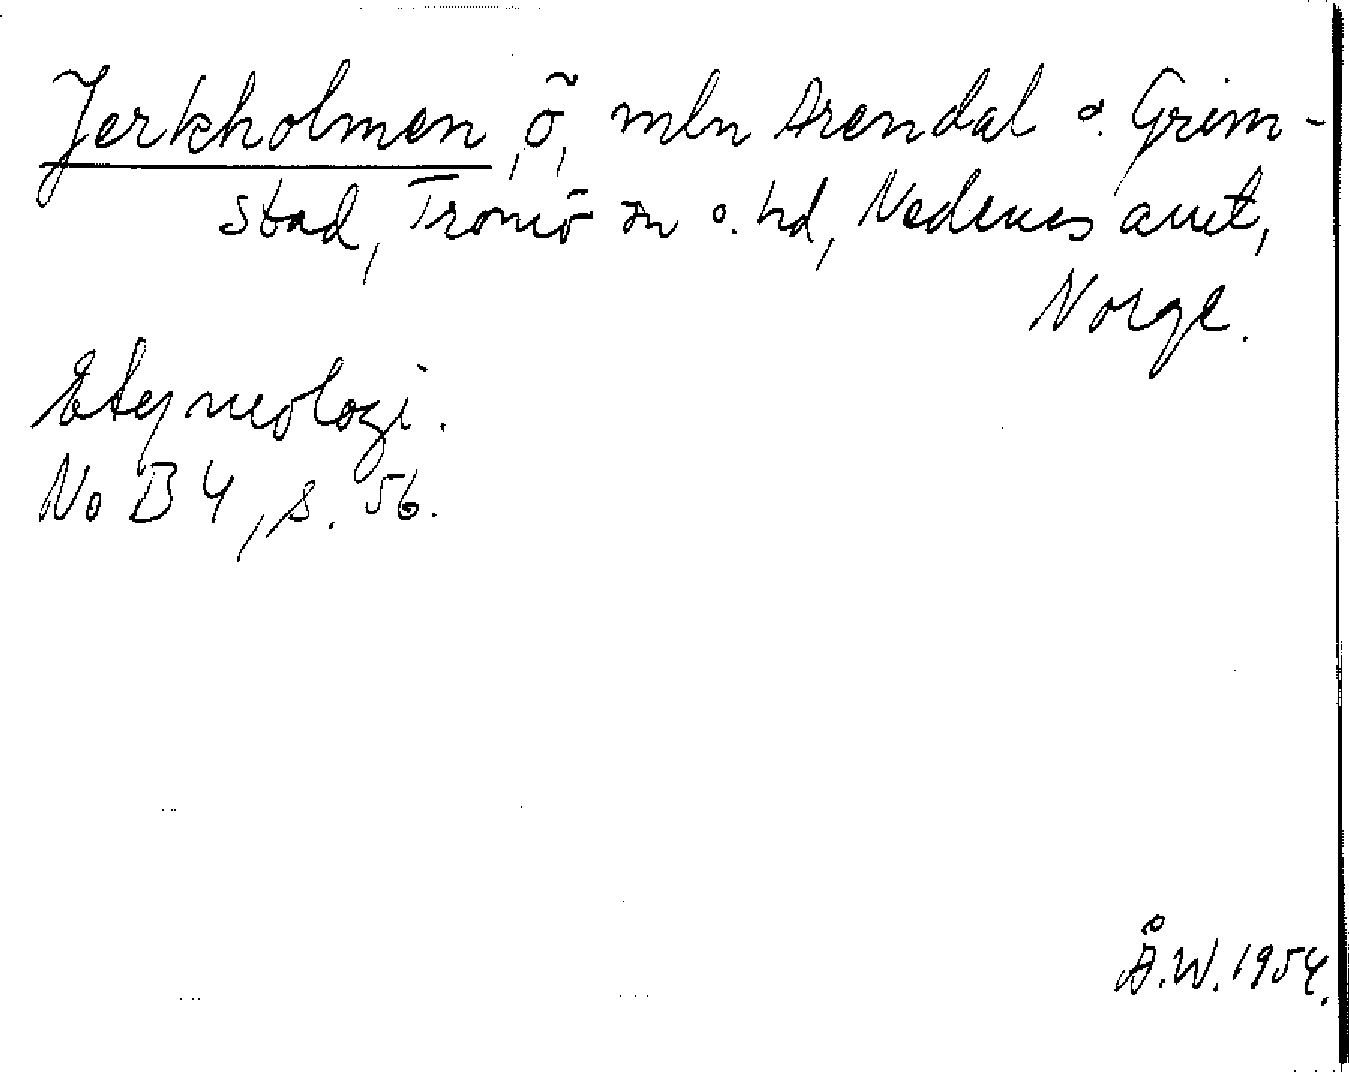 Jerkholmen, ö, mln Arendal o. Grim-
stad, Tromö sn o. hd, Nedenes amt,
Norge.
Etymologi.
NoB 4, s. 56.
Å.W. 1954.